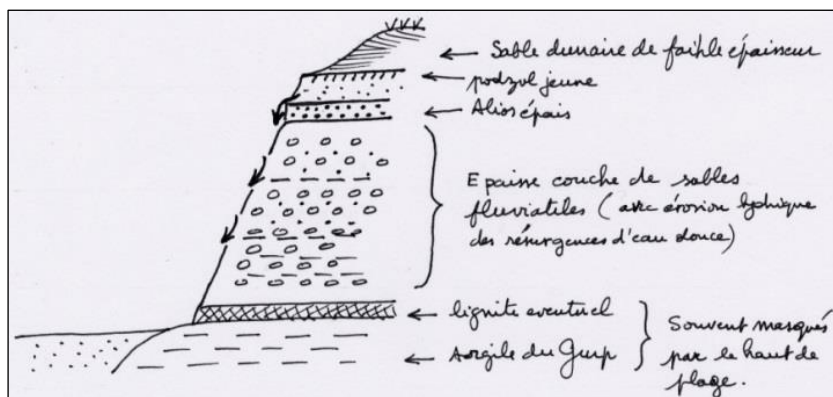 Sable dunaire de faible épaisseur
podzol jeune
Alios épais
Epaisse couche de sables
fluviatiles (avec érosion hydrique
des résurgences d'eau douce)
lignite eventuel
Argile du Gurp
Souvent masqués
par le haut de
plage.